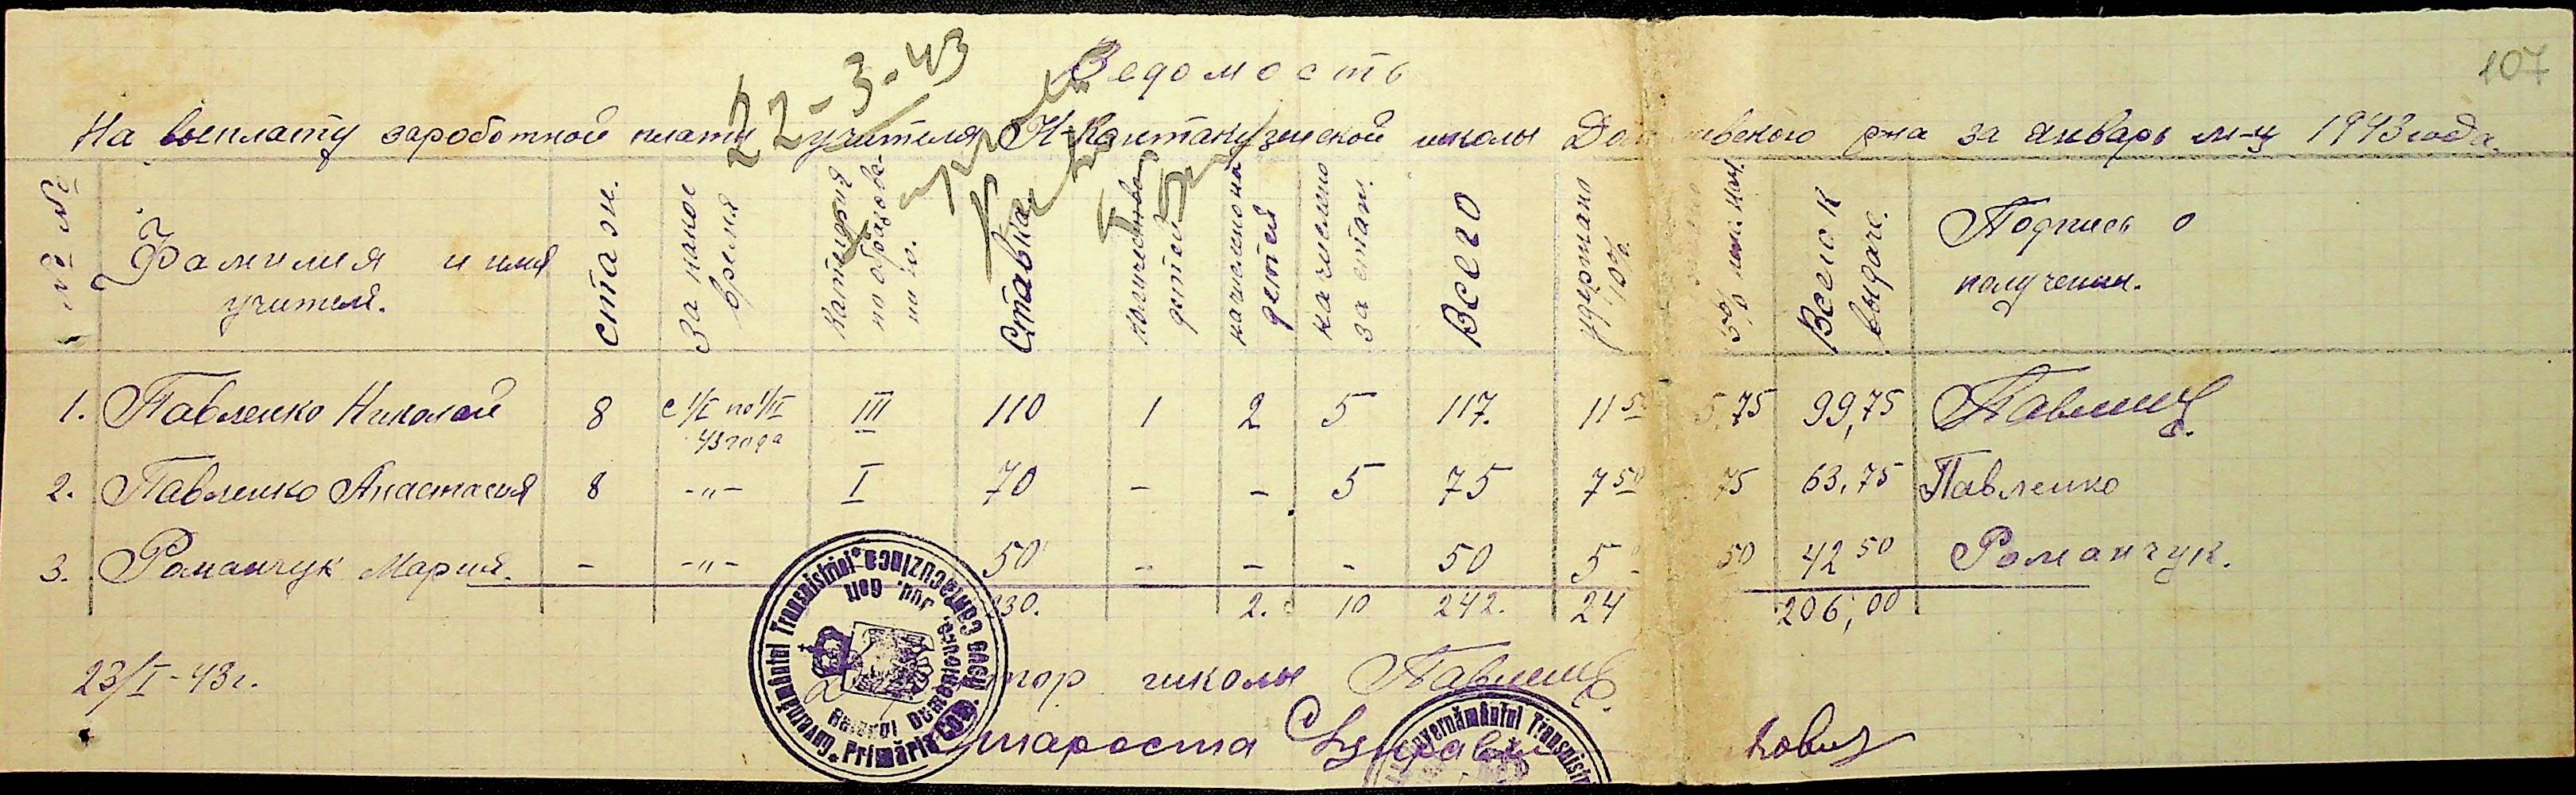 107
Ведомость
22-3-43
На выплату зароботной платы учителям Н-Кантакузенской школы До вского р-на за январь м-ц 1943 года.
№№ Фамилия и имя учителя. стаж. За какое время Категория по образова- нию. Ставка количество детей начислено на детей начислено за стаж. Всего удержано 10% 5% Всего к выдаче. Подпись о получении.
1. Павленко Николай 8 с 1/I по 1/II 43 года III 110 1 2 5 117. 11 5 5,75 99,75 Павленко
2. Павленко Анастасия 8 -"- I 70 - - 5 75 7 50 75 63,75 Павленко
3. Романчук Мария. - -"- 50 - - - 50 5 - 50 42 50 Романчук.
230. 2. 10 242. 24 206,00
23/I-43 г.
тор школы Павленко
Староста
Guvernământul Transnistriei
Primăria Com. Nova Cantacuzinca
Jud. Golta
Guvernământul Transnistr